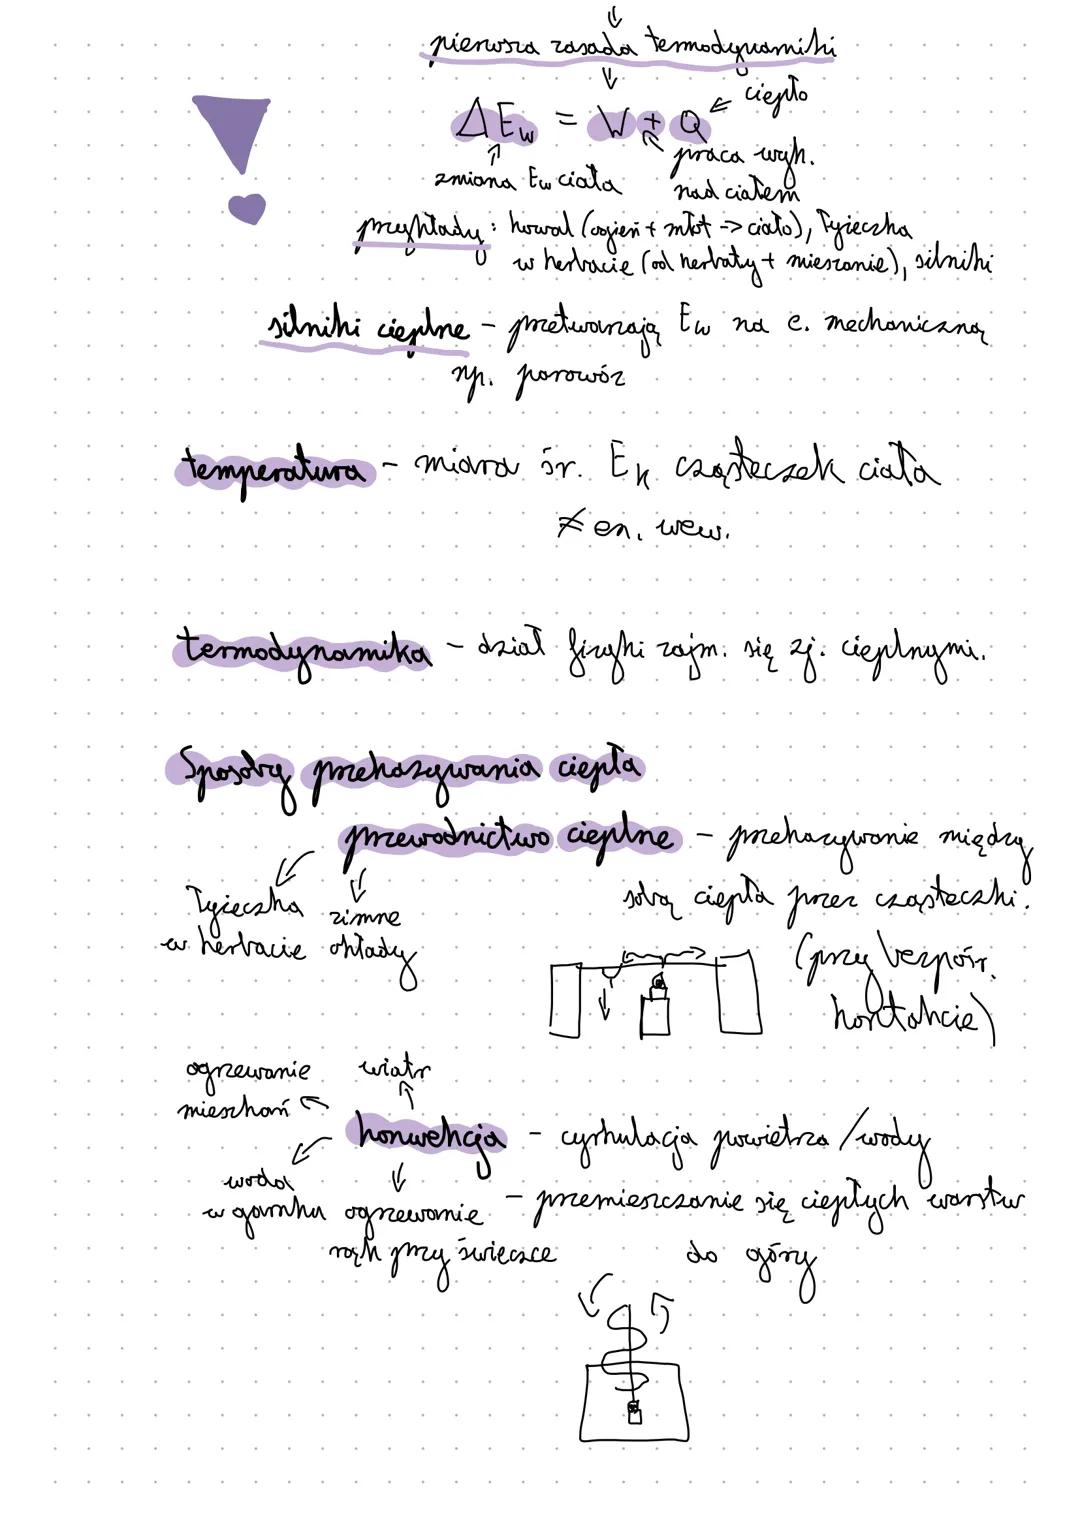 pierwsza zasada termodynamiki
ΔEw = W + Q
ciepło
praca wyk.
nad ciałem
zmiana Ew ciała
przykłady: kowal (ogień + młot -> ciało), łyżeczka
w herbacie (od herbaty + mieszanie), silniki
silniki cieplne - przetwarzają Ew na e. mechaniczną
np. parowóz
temperatura - miara śr. Ek cząsteczek ciała
≠ en. wew.
termodynamika - dział fizyki zajm. się zj. cieplnymi.
Sposoby przekazywania ciepła
przewodnictwo cieplne - przekazywanie między
sobą ciepła przez cząsteczki.
(przy bezpośr.
kontakcie)
łyżeczka
w herbacie
zimne
okłady
ogrzewanie
mieszkań
wiatr
konwekcja - cyrkulacja powietrza/wody
- przemieszczanie się ciepłych warstw
do góry
woda
w garnku
ogrzewanie
rąk przy świeczce